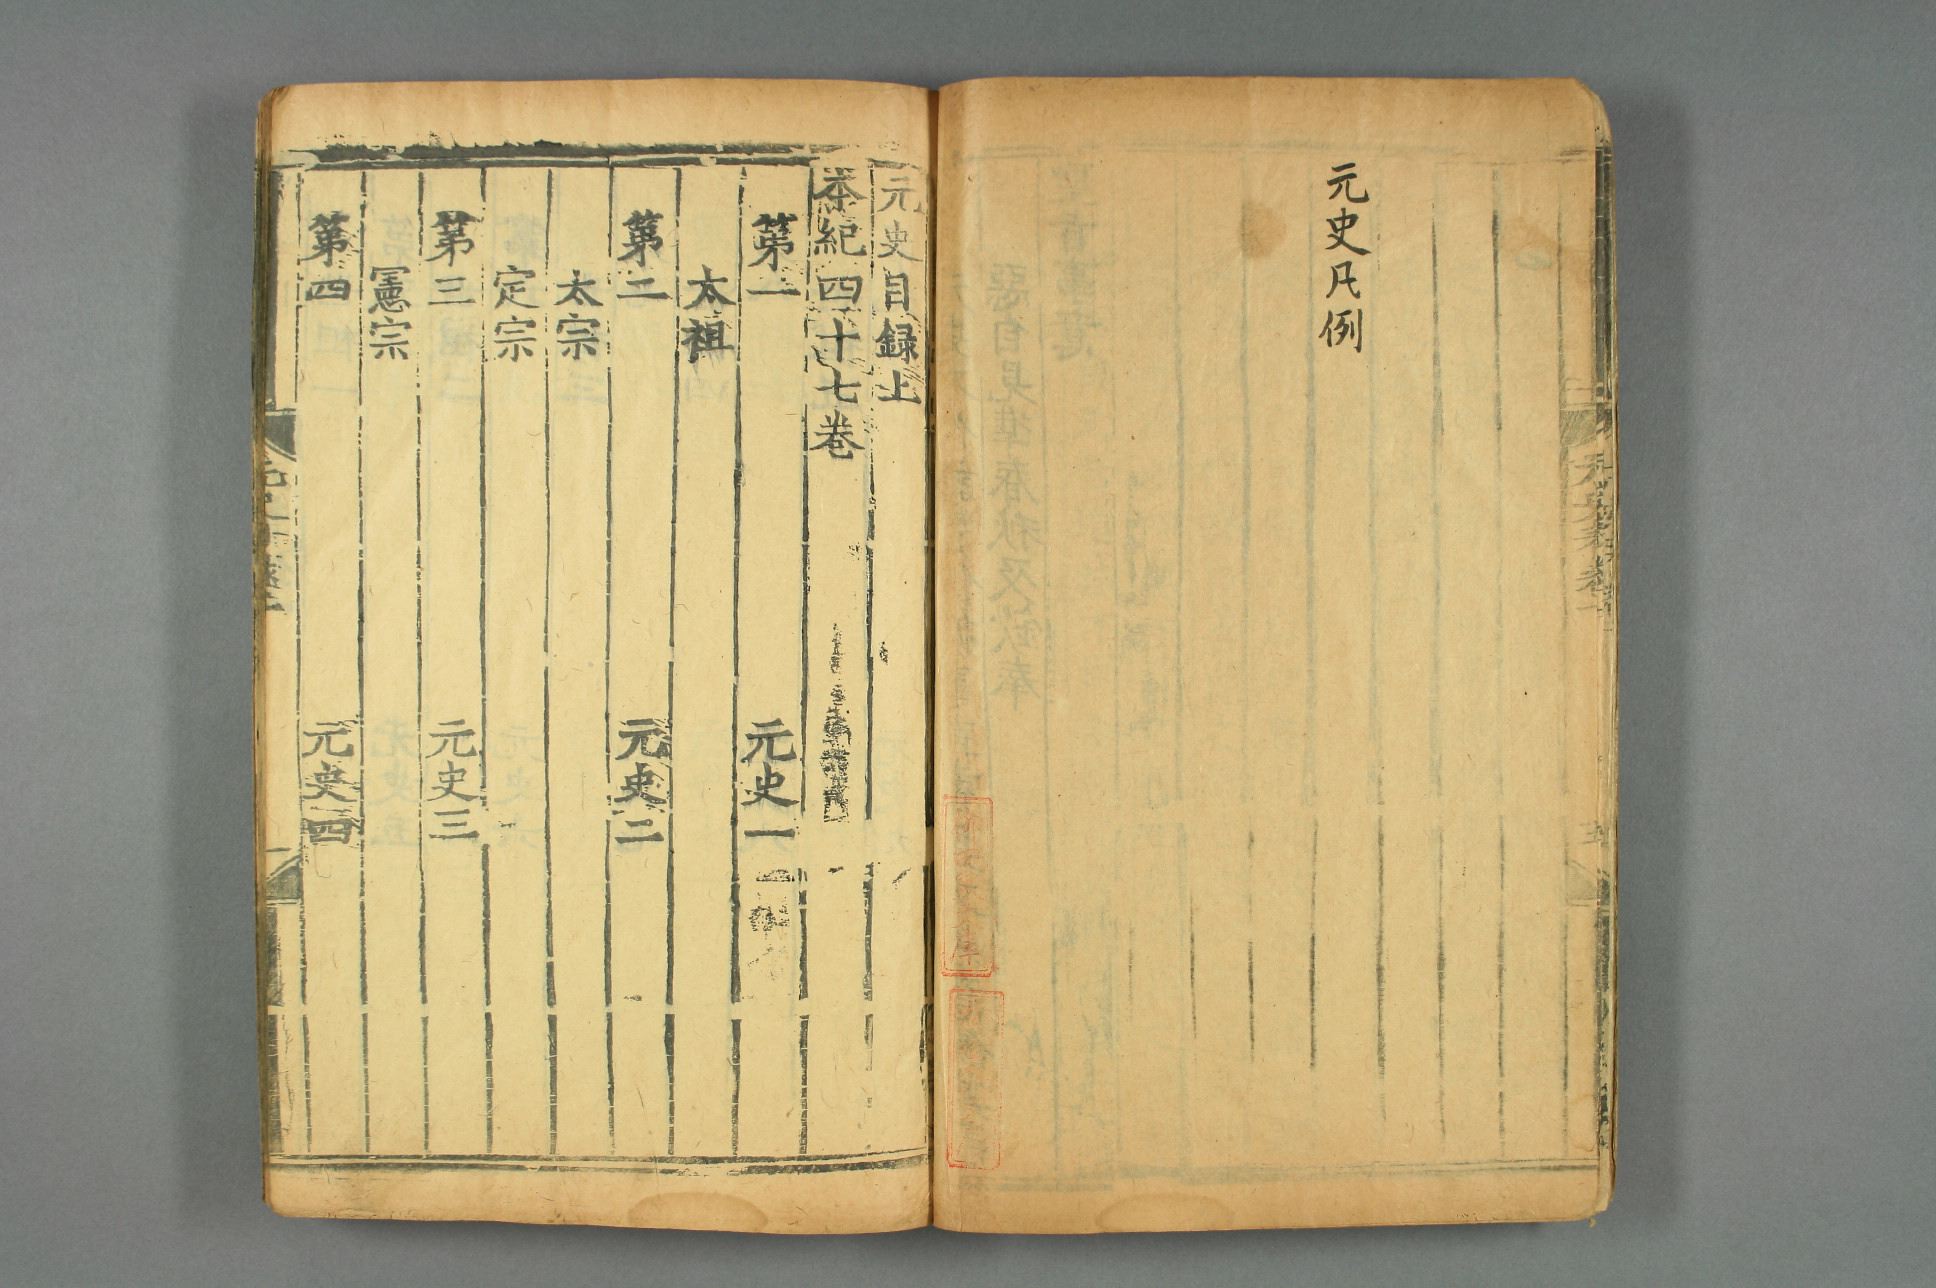 元史凡例
元史目録上
本紀四十七卷
第一 元史一
太祖
第二 元史二
太宗
定宗
第三 元史三
憲宗
第四 元史四